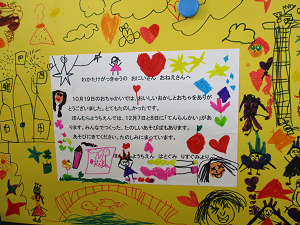 わかたけがっきゅうの おにいさん おねえさんへ
10月19日のおちゃかいでは、おいしいおかしとおちゃをありが
とうございました。とてもたのしかったです。
ほんむらようちえんでは、12月7日と8日に「てんらんかい」があ
ります。みんなでつくった、たのしいあそびばもあります。
あそびにきてください。たのしみにまっています。
ほんむらようちえん はとぐみ りすぐみより